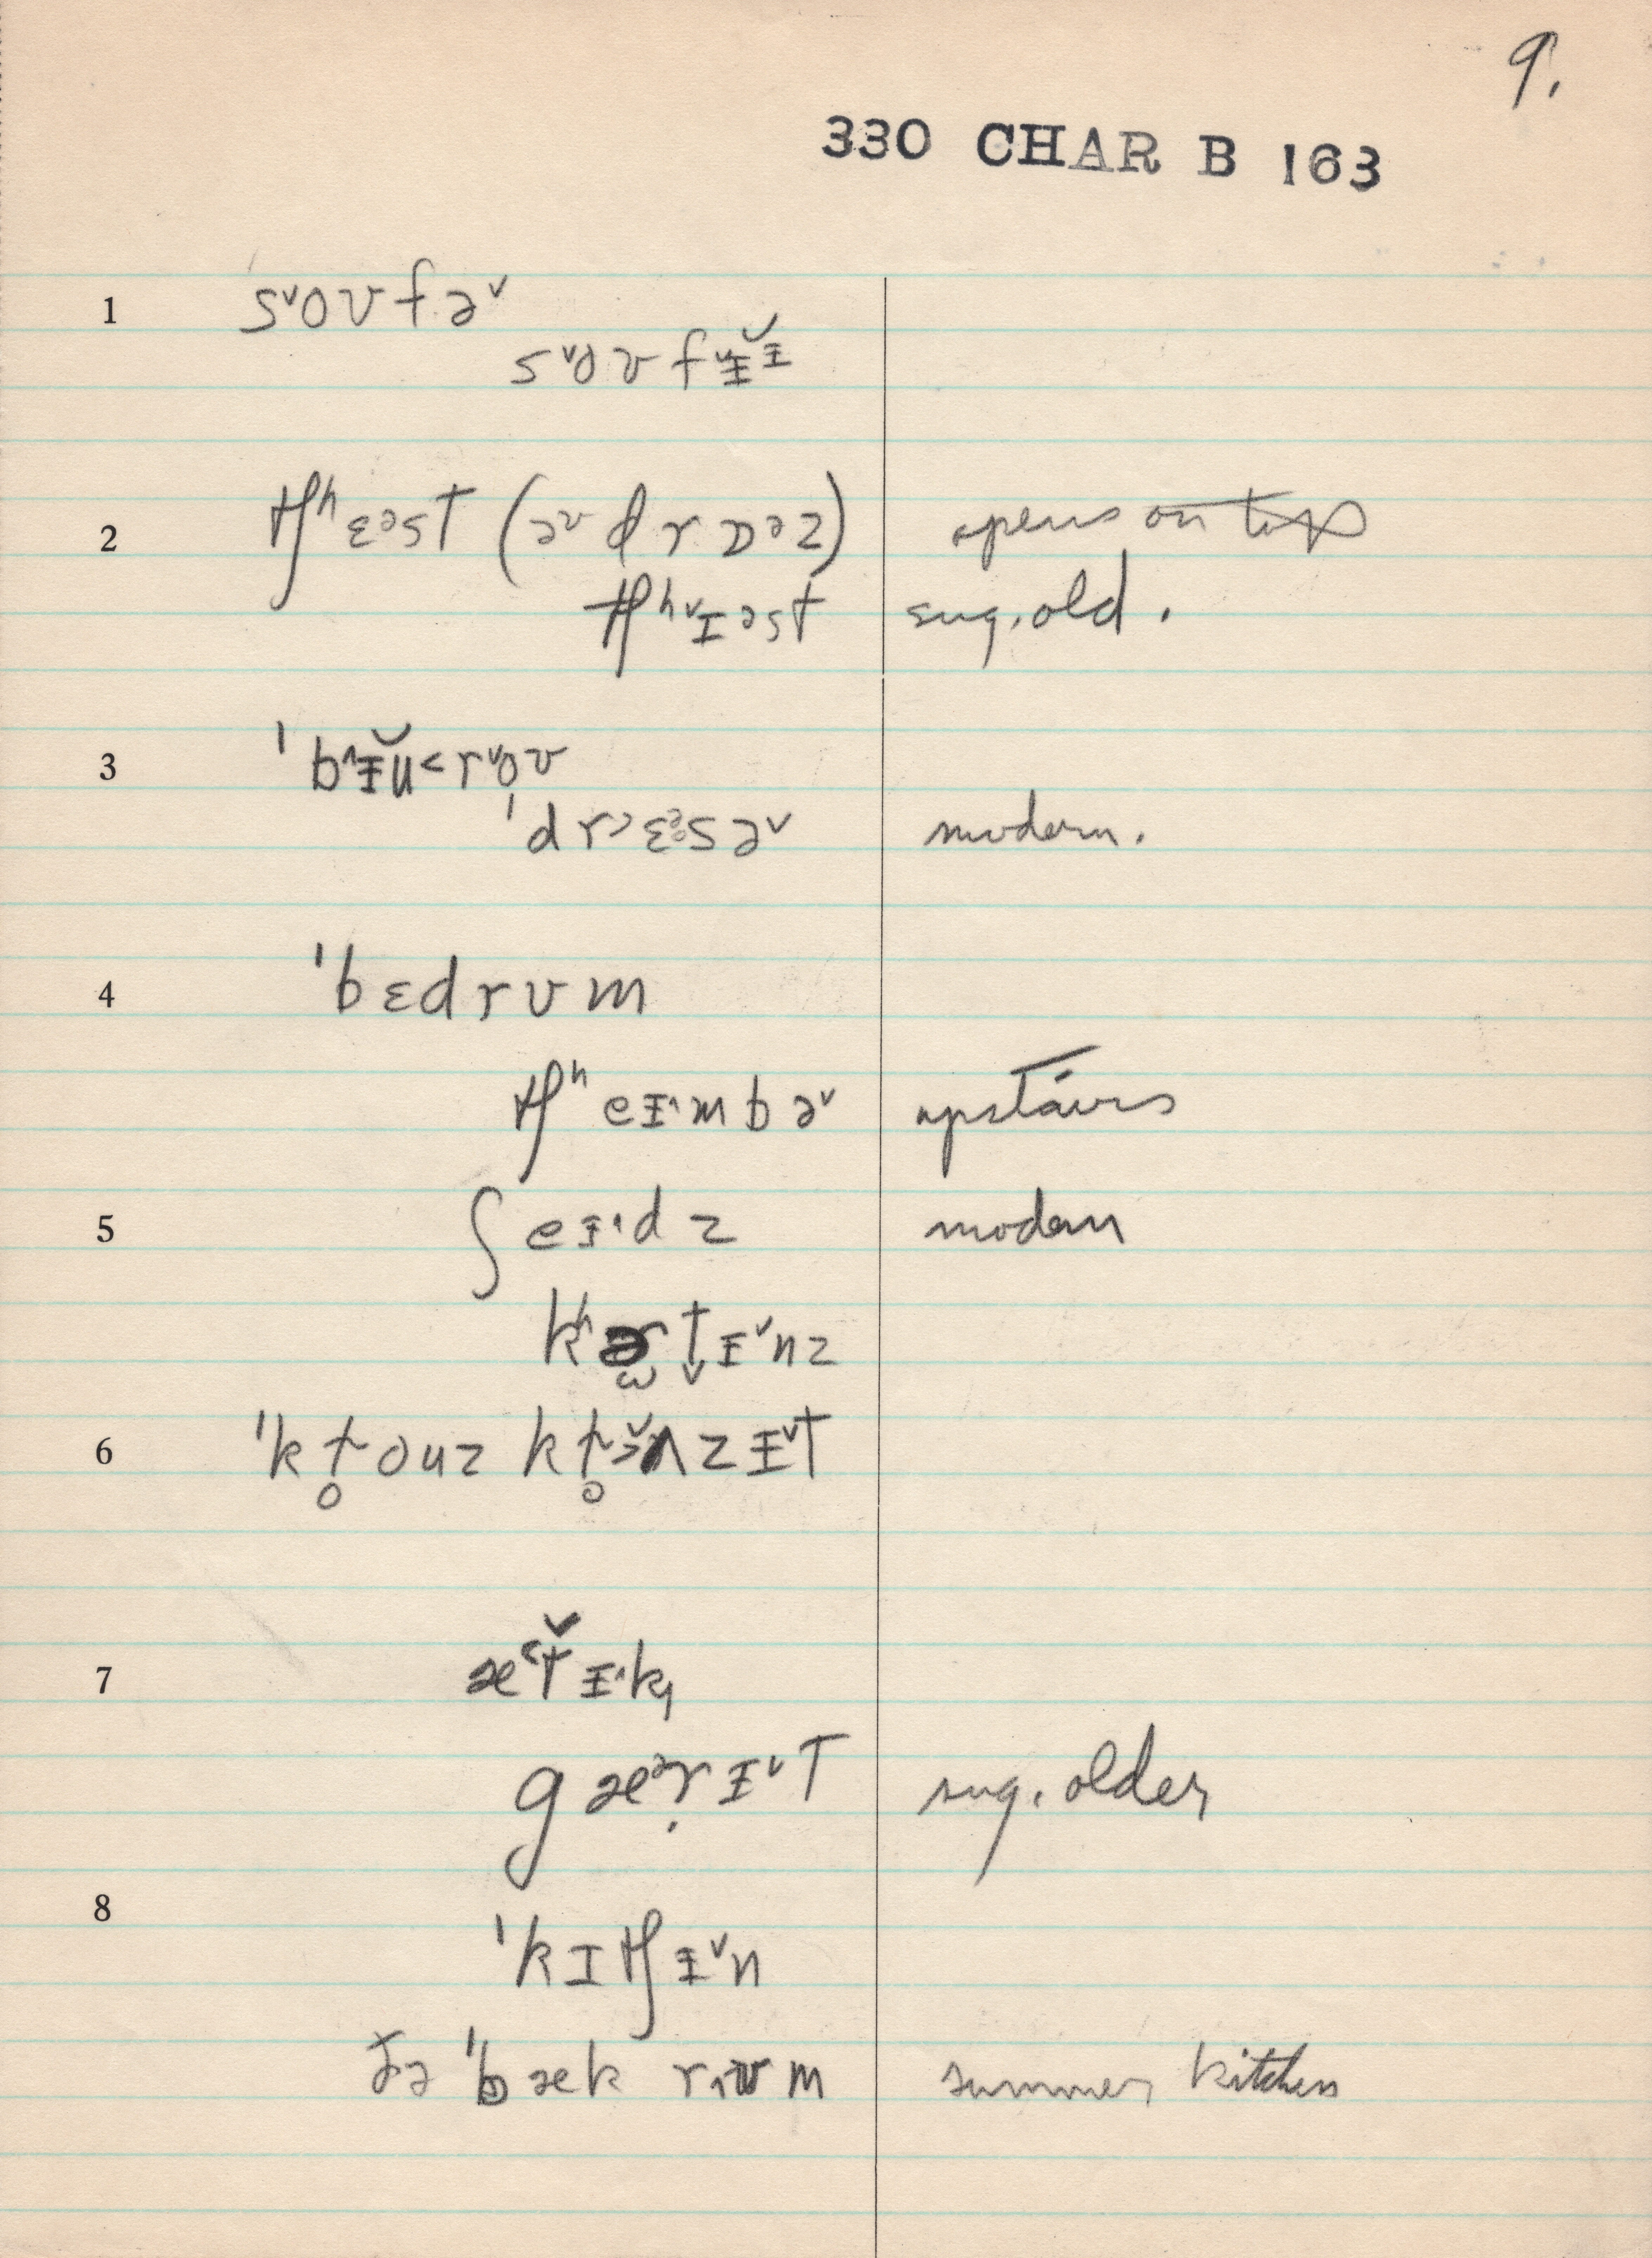 9.
330 CHAR B 163
1 s˅oʊfə˅
s˅oʊf˅ɪ̵ɪ̵̆
2 tʃʰɛᵊst (ə˅ drɒᵊz) opens o̶n̶ ̶t̶o̶p̶
tʃʰ˅ɪᵊst sug. old.
3 ˈb^ɪ̵ŭ<r˅oʊ
ˈdr>ɛᵊsə˅ modern.
4 ˈbɛdrʊm
tʃʰeɪ̵^mbə˅ upstairs
5 ʃeɪ̵^dz modern
kʰɚtɪ̵˅nz
6 ˈkɫ̥ouz kɫ̥ɒzɪ̵˅t
7 æ<t̬ɪ̵^k
gæᵊrɪ̵˅t sug. older
8 ˈkɪtʃɪ̵˅n
ðə ˈbæk rʊm summer kitchen